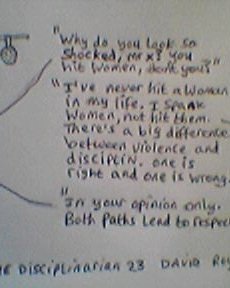 "Why do you look so
shocked, Mr X? You
hit women, don't you?"
"I've never hit a woman
in my life. I spank
women, not hit them.
There's a big difference
between violence and
disciplin. one is
right and one is wrong.
"In your opinion only.
Both Paths Lead to respec
HE DISCIPLINARIAN 23 DAVID